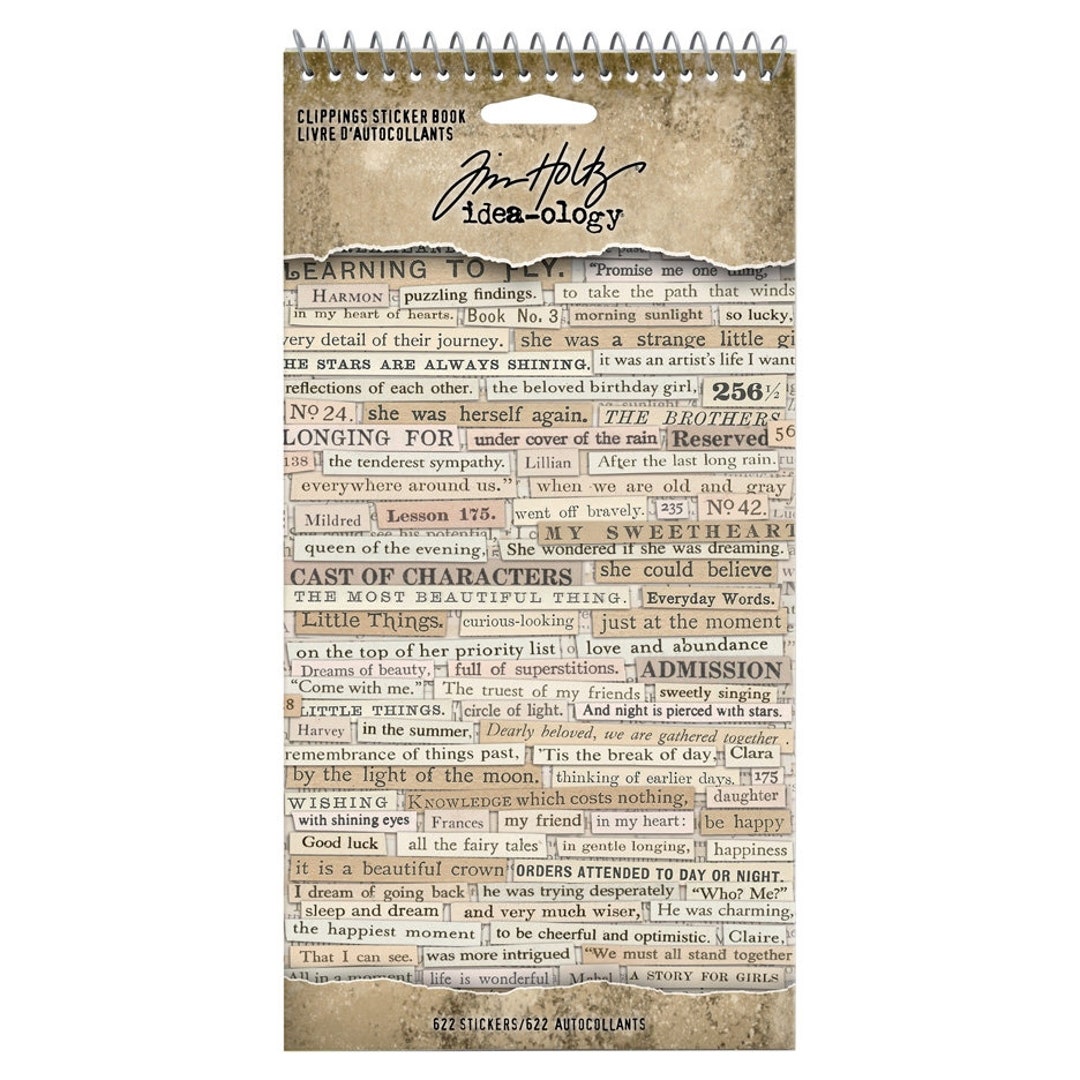 CLIPPINGS STICKER BOOK
LIVRE D'AUTOCOLLANTS
Tim Holtz
idea-ology
LEARNING TO FLY. "Promise me one thing,
HARMON puzzling findings. to take the path that winds
in my heart of hearts. Book No. 3 morning sunlight so lucky,
very detail of their journey. she was a strange little gi
HE STARS ARE ALWAYS SHINING. it was an artist's life I want
reflections of each other. the beloved birthday girl, 256 1/2
No 24. she was herself again. THE BROTHERS
LONGING FOR under cover of the rain Reserved 56
138 the tenderest sympathy. Lillian After the last long rain.
everywhere around us." when we are old and gray
Mildred Lesson 175. went off bravely. 235 No 42.
MY SWEETHEART
queen of the evening, She wondered if she was dreaming.
CAST OF CHARACTERS she could believe
THE MOST BEAUTIFUL THING. Everyday Words.
Little Things. curious-looking just at the moment
on the top of her priority list love and abundance
Dreams of beauty, full of superstitions. ADMISSION
"Come with me." The truest of my friends sweetly singing
8 LITTLE THINGS. circle of light. And night is pierced with stars.
Harvey in the summer, Dearly beloved, we are gathered together
remembrance of things past, 'Tis the break of day, Clara
by the light of the moon. thinking of earlier days. 175
WISHING KNOWLEDGE which costs nothing, daughter
with shining eyes Frances my friend in my heart: be happy
Good luck all the fairy tales in gentle longing, happiness
it is a beautiful crown ORDERS ATTENDED TO DAY OR NIGHT.
I dream of going back he was trying desperately "Who? Me?"
sleep and dream and very much wiser, He was charming,
the happiest moment to be cheerful and optimistic. Claire,
That I can see. was more intrigued "We must all stand together
All in a moment life is wonderful Mabel A STORY FOR GIRLS
622 STICKERS/622 AUTOCOLLANTS